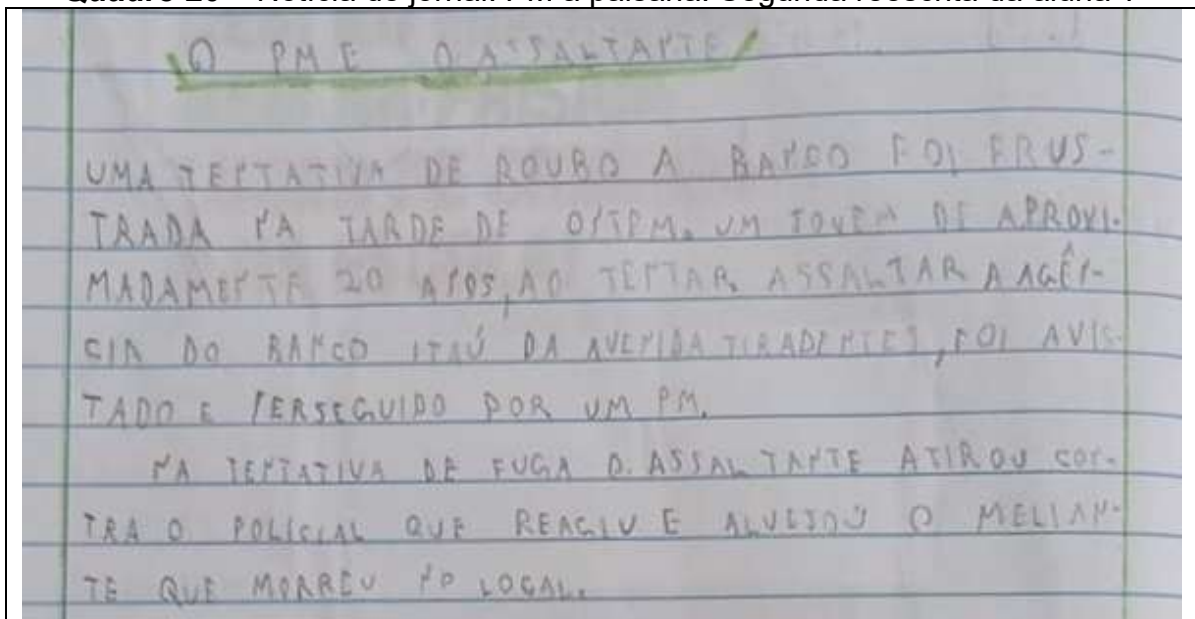 O PM E O ASSALTANTE
UMA TENTATIVA DE ROUBO A BANCO FOI FRUS-
TRADA NA TARDE DE ONTEM. UM JOVEM DE APROXI-
MADAMENTE 20 ANOS, AO TENTAR ASSALTAR A AGÊN-
CIA DO BANCO ITAÚ DA AVENIDA TIRADENTES, FOI AVIS-
TADO E PERSEGUIDO POR UM PM.
NA TENTATIVA DE FUGA O ASSALTANTE ATIROU CON-
TRA O POLICIAL QUE REAGIU E ALVEJOU O MELIAN-
TE QUE MORREU NO LOCAL.